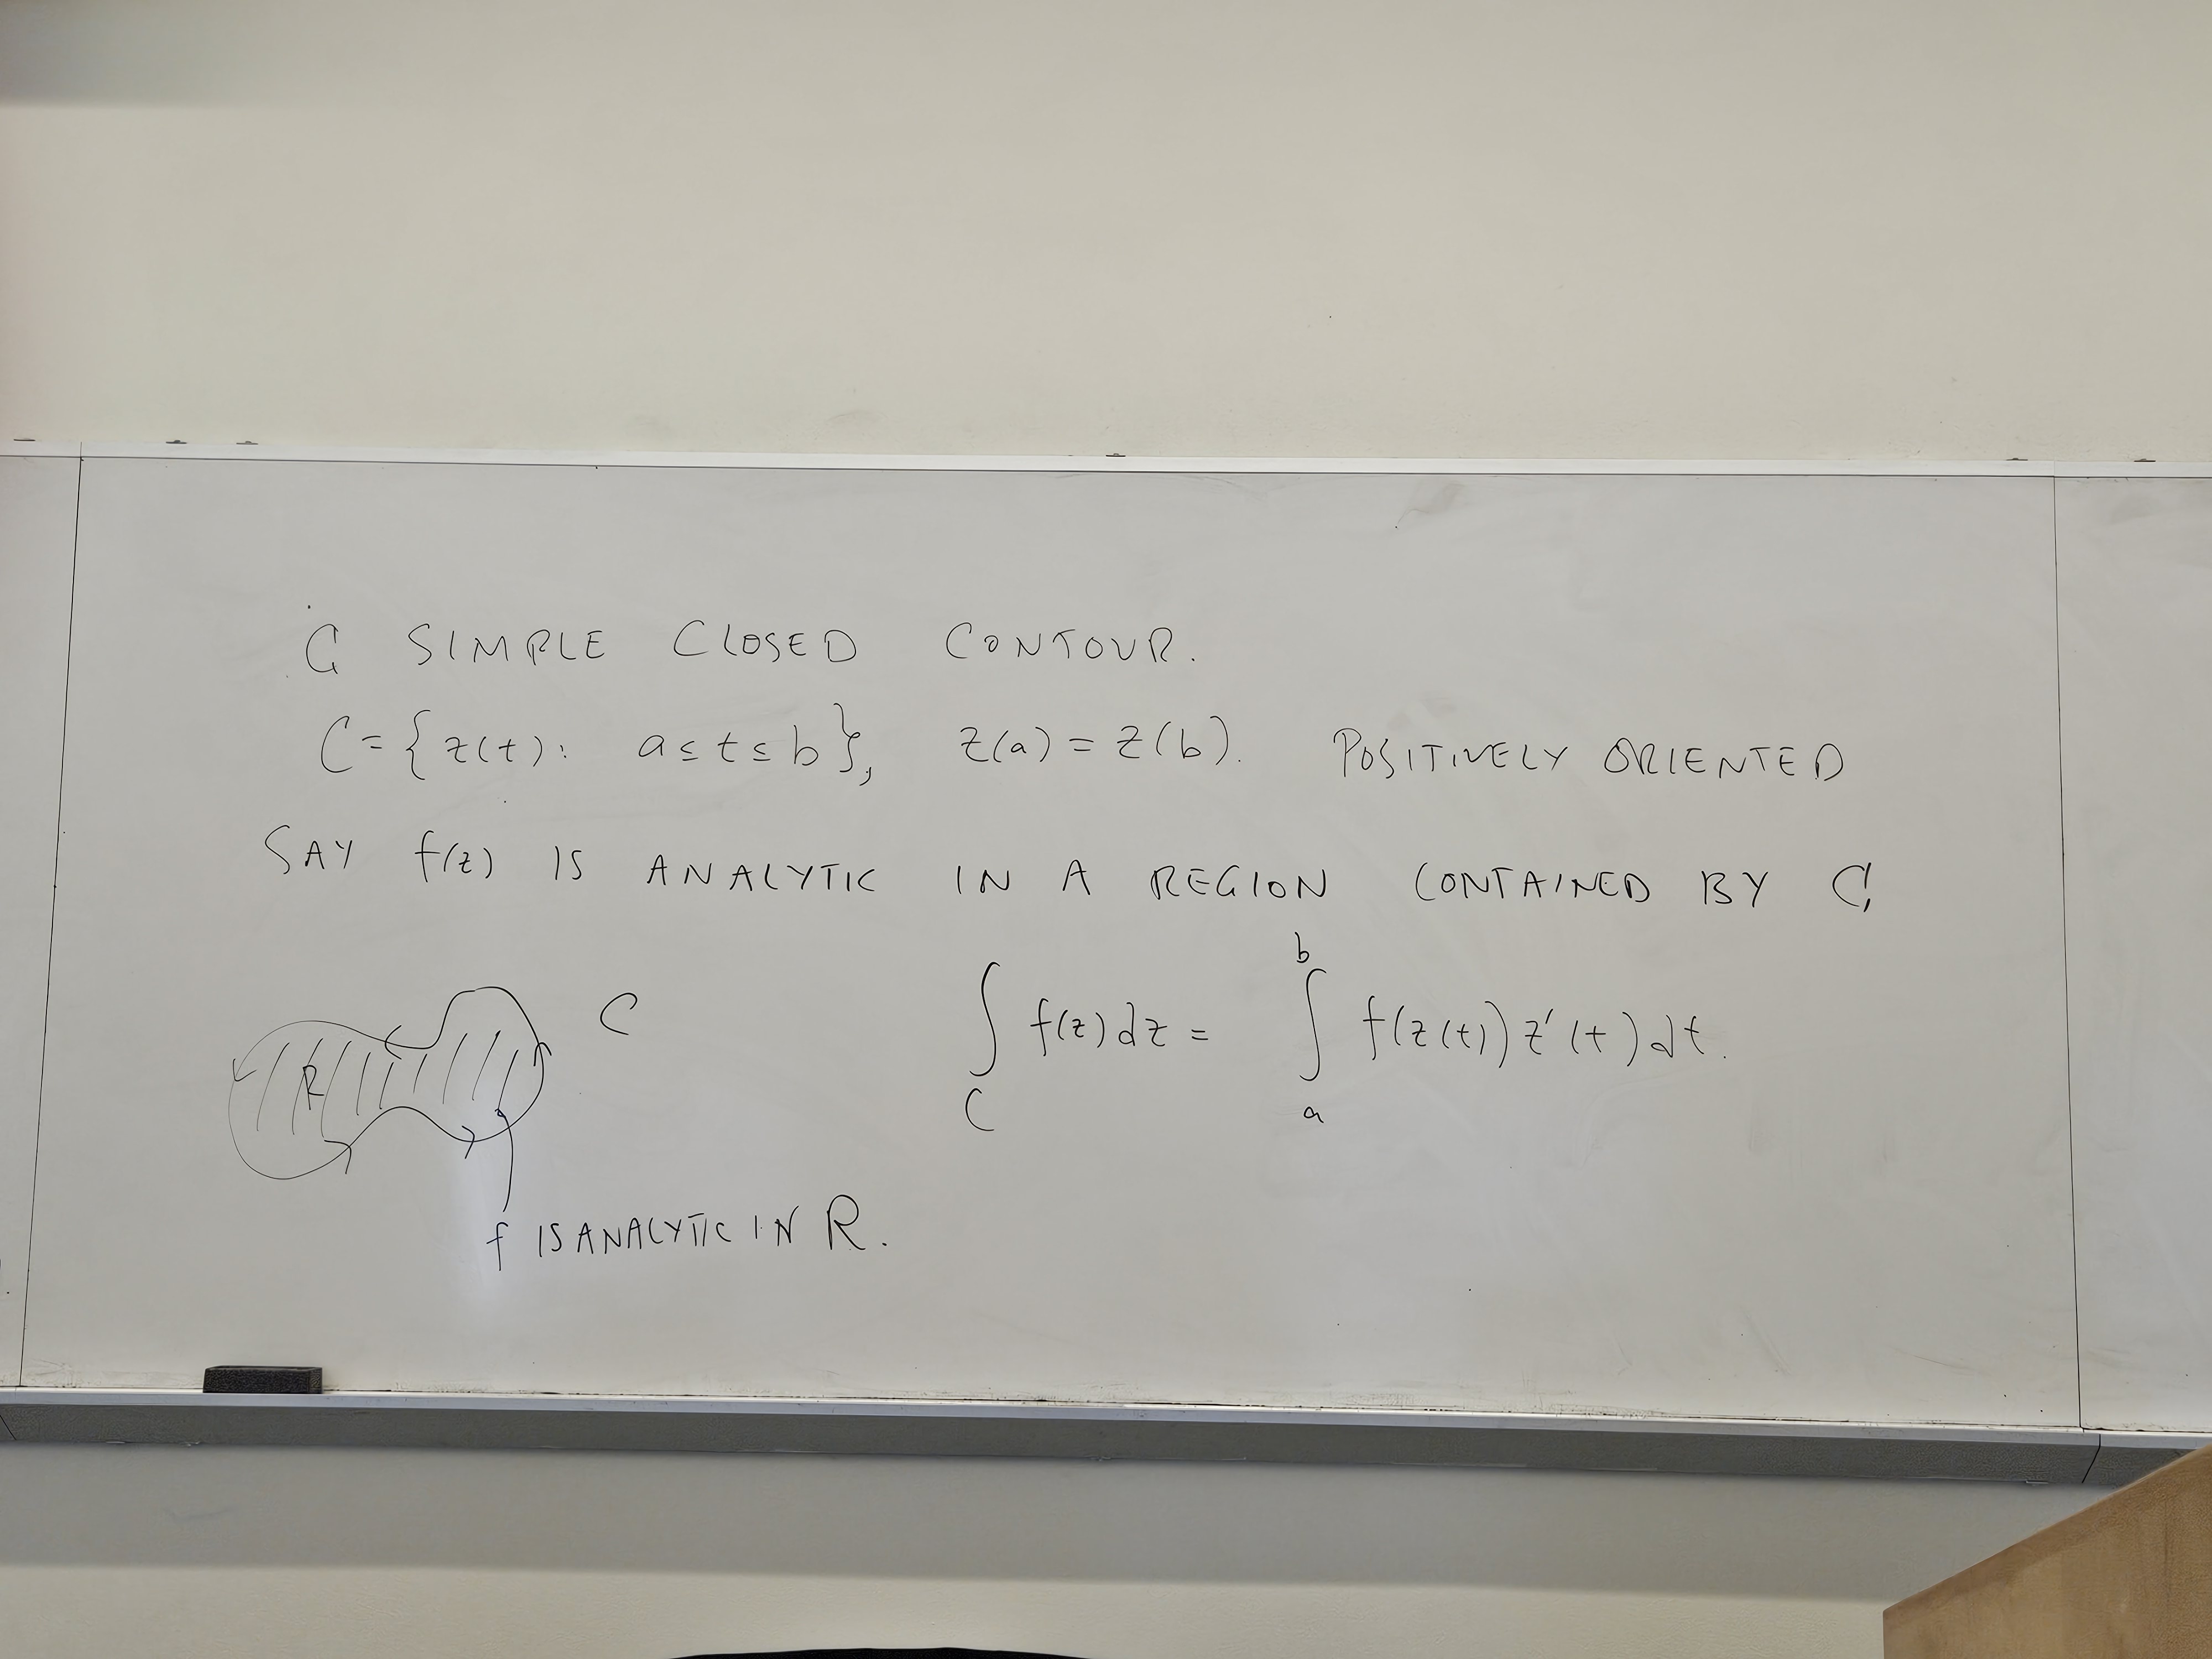 C SIMPLE CLOSED CONTOUR.
C = {z(t): a ≤ t ≤ b}, z(a) = z(b). POSITIVELY ORIENTED
SAY f(z) IS ANALYTIC IN A REGION CONTAINED BY C,
C
R
∫_C f(z)dz = ∫_a^b f(z(t)) z'(t) dt.
f IS ANALYTIC IN R.